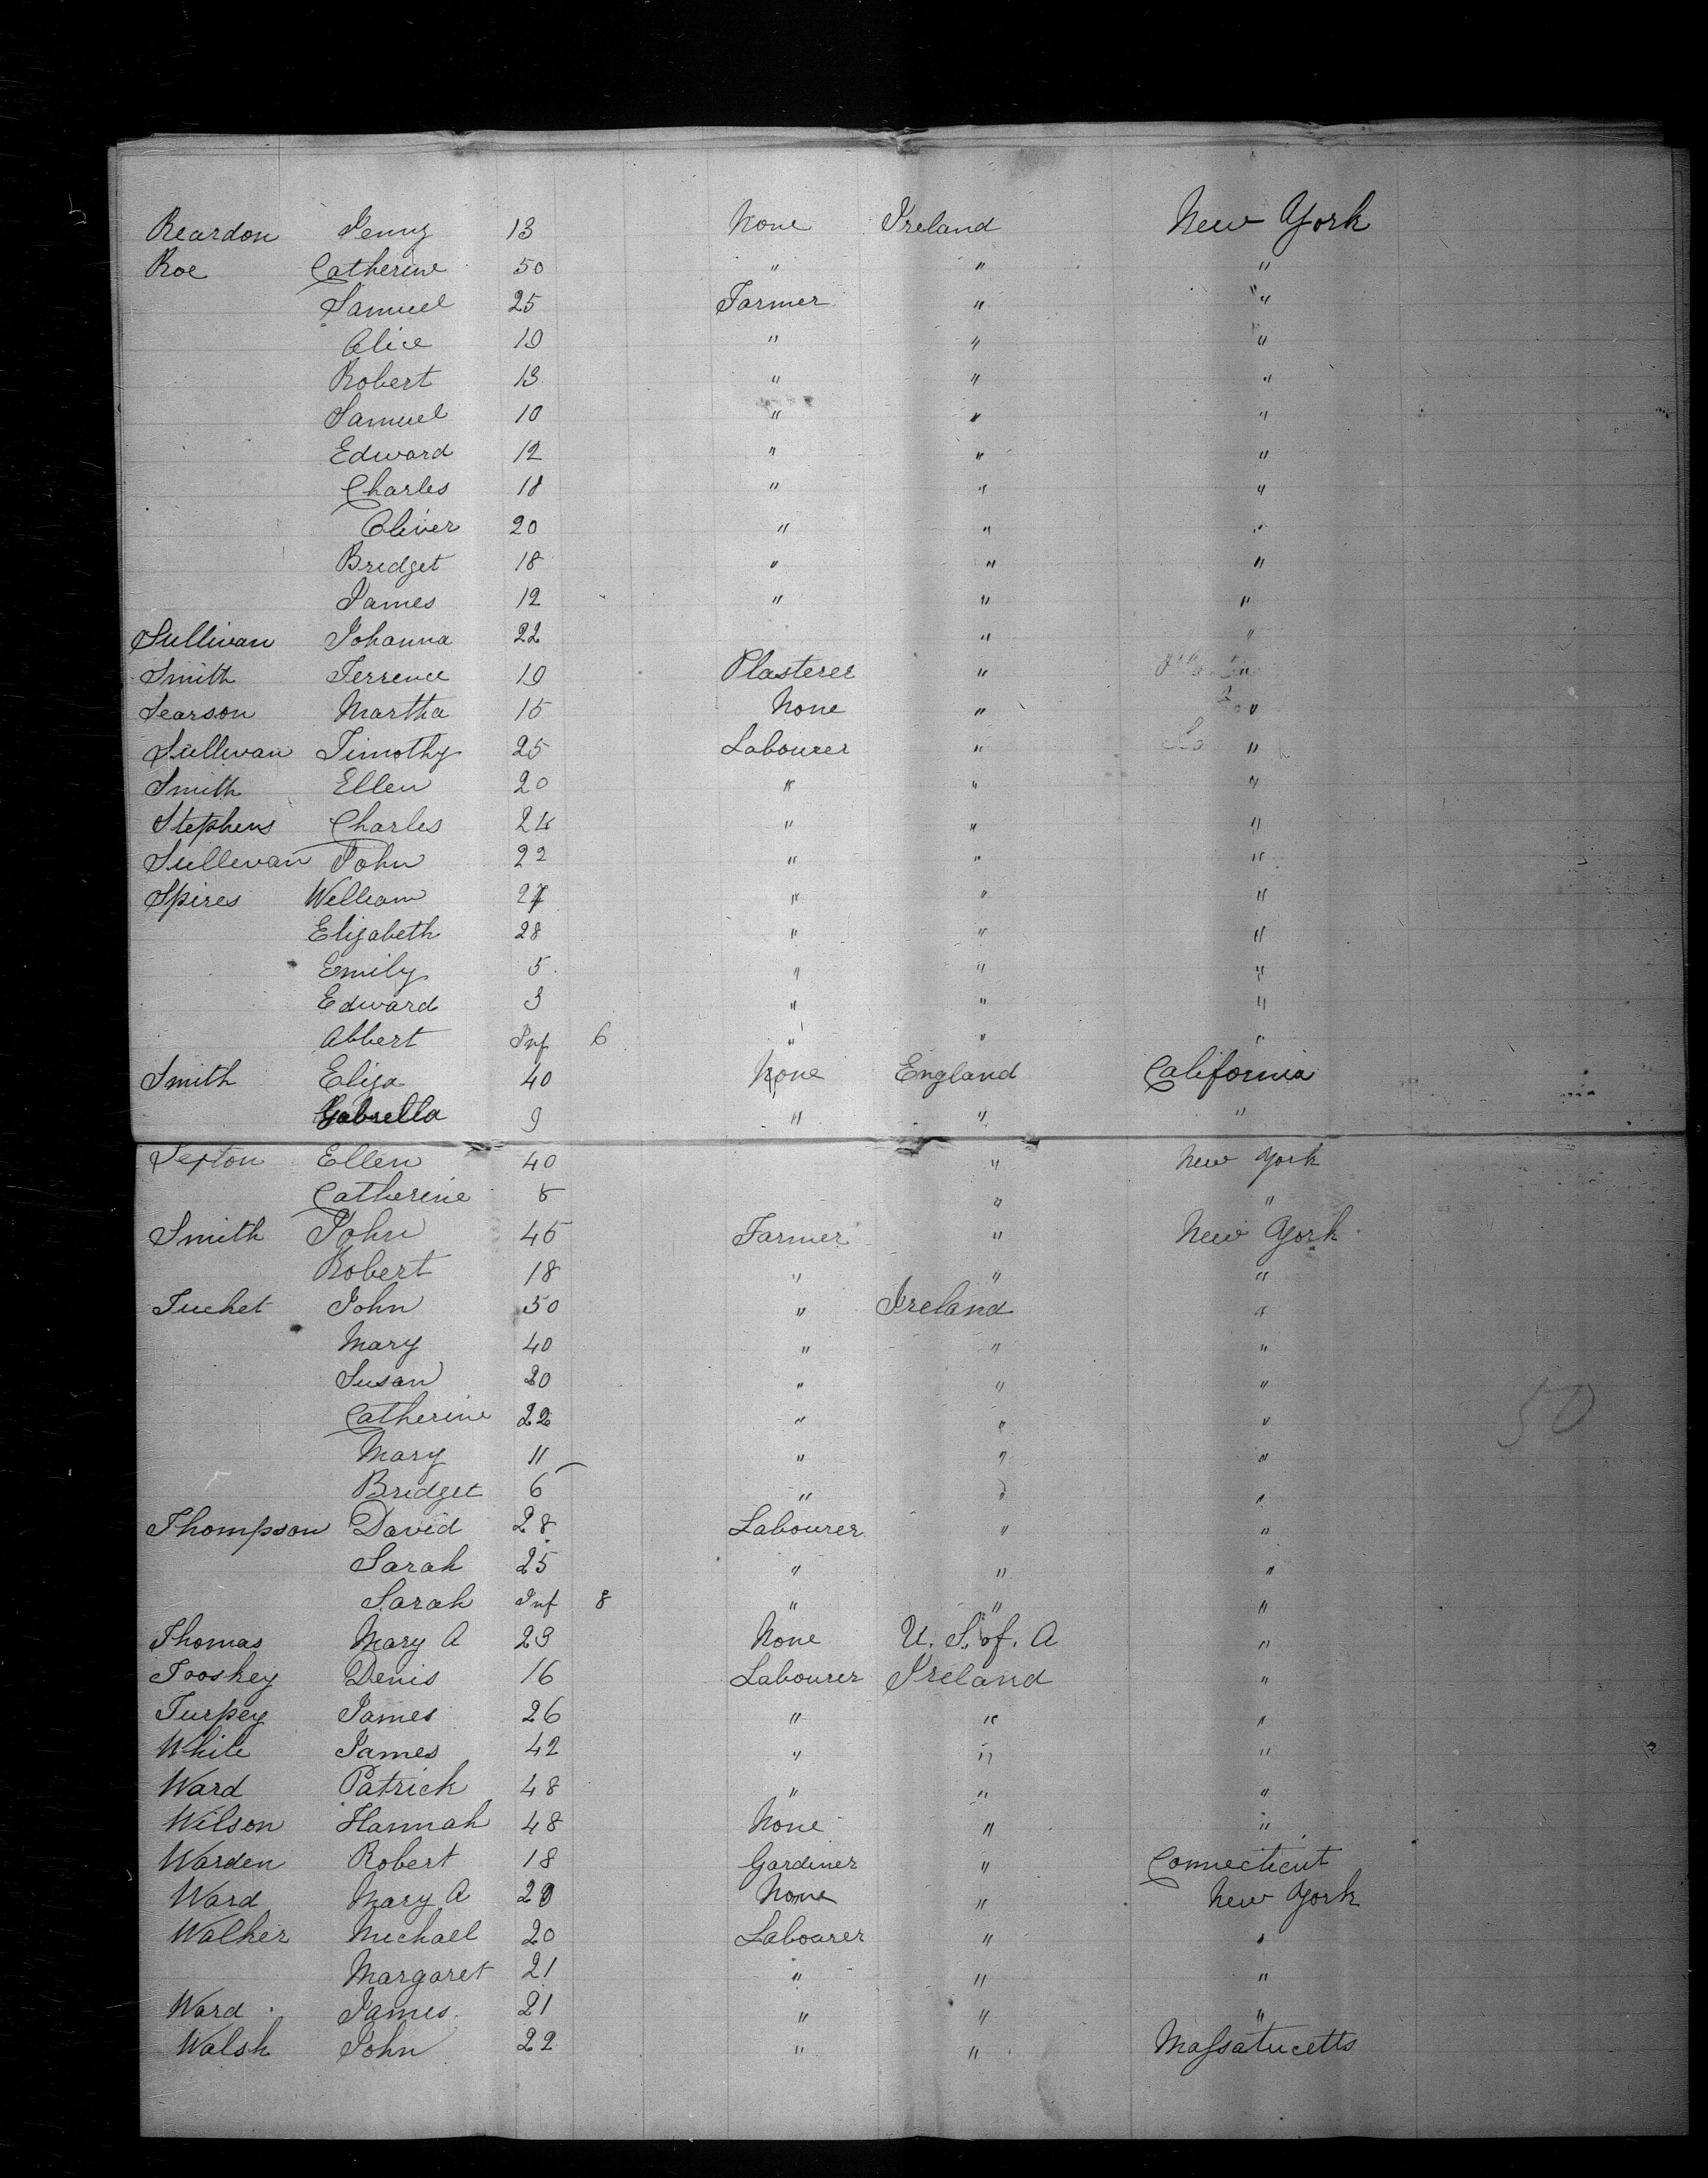 Reardon Jenny 13 None Ireland New York
Roe Catherine 50 " " "
Samuel 25 Farmer " "
Alice 19 " " "
Robert 13 " " "
Samuel 10 " " "
Edward 12 " " "
Charles 18 " " "
Oliver 20 " " "
Bridget 18 " " "
James 12 " " "
Sullivan Johanna 22 " "
Smith Terrence 19 Plasterer " "
Searson Martha 15 None " "
Sullivan Timothy 25 Labourer " "
Smith Ellen 20 " " "
Stephens Charles 24 " " "
Sullivan John 22 " " "
Spires William 27 " " "
Elizabeth 28 " " "
Emily 5 " " "
Edward 3 " " "
Albert Inf 6 " " "
Smith Eliza 40 None England California
Gabrella 9 " " "
Sexton Ellen 40 " New York
Catherine 5 " "
Smith John 45 Farmer " New York
Robert 18 " " "
Tucket John 50 " Ireland "
Mary 40 " " "
Susan 20 " " "
Catherine 22 " " "
Mary 11 " " "
Bridget 6 " " "
Thompson David 28 Labourer " "
Sarah 25 " " "
Sarah Inf 8 " " "
Thomas Mary A 23 None U. S. of. A "
Tooskey Denis 16 Labourer Ireland "
Turpey James 26 " " "
White James 42 " " "
Ward Patrick 48 " " "
Wilson Hannah 48 None " "
Warden Robert 18 Gardiner " Connecticut
Ward Mary A 20 None " New York
Walker Michael 20 Labourer " "
Margaret 21 " " "
Ward James 21 " " "
Walsh John 22 " " Massatucetts
50